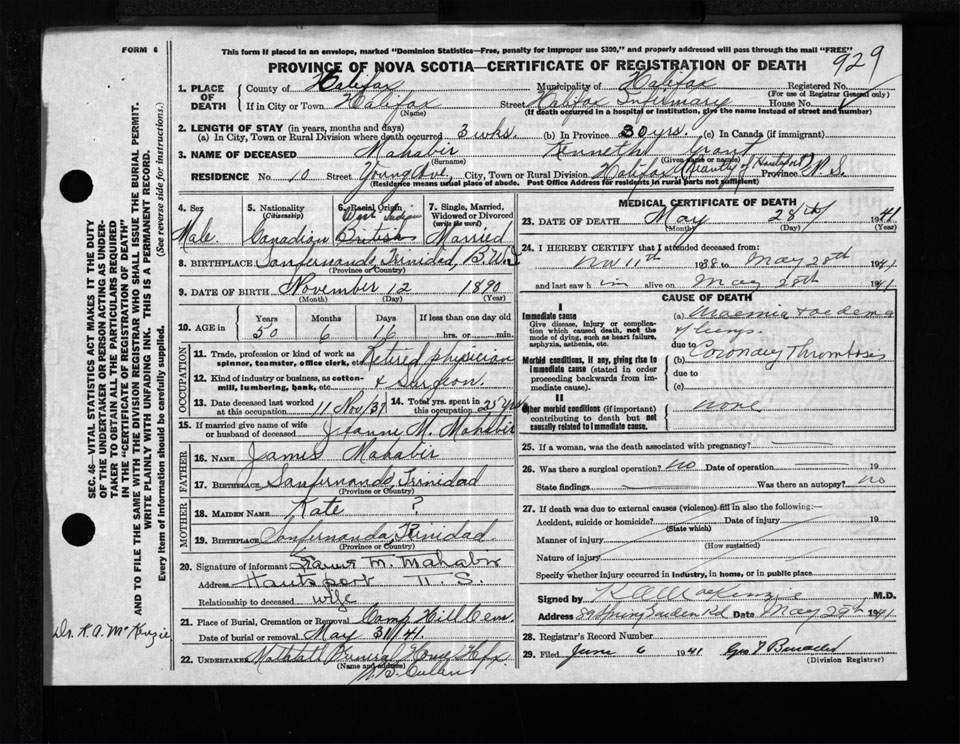 FORM 6
This form if placed in an envelope, marked "Dominion Statistics—Free, penalty for improper use $300," and properly addressed will pass through the mail "FREE"
PROVINCE OF NOVA SCOTIA—CERTIFICATE OF REGISTRATION OF DEATH
929
1. PLACE OF DEATH County of Halifax Municipality of Halifax Registered No.
(For use of Registrar General only)
If in City or Town Halifax Street Halifax Infirmary House No.
(Name) (If death occurred in a hospital or institution, give the name instead of street and number)
2. LENGTH OF STAY (in years, months and days)
(a) In City, Town or Rural Division where death occurred 3 wks. (b) In Province 30 yrs. (c) In Canada (if immigrant)
3. NAME OF DECEASED Mahabir Kenneth Grant
(Surname) (Given name or names)
RESIDENCE No. 10 Street Young Ave. City, Town or Rural Division Halifax Hantsport Province N.S.
(Residence means usual place of abode. Post Office Address for residents in rural parts not sufficient)
4. Sex Male
5. Nationality (Citizenship) Canadian
6. Racial Origin West Indian British
7. Single, Married, Widowed or Divorced (write the word) Married
8. BIRTHPLACE Sanfernando, Trinidad, B.W.I
(Province or Country)
9. DATE OF BIRTH November 12 1890
(Month) (Day) (Year)
10. AGE in Years Months Days If less than one day
50 6 16 hrs. or min.
OCCUPATION
11. Trade, profession or kind of work as spinner, teamster, office clerk, etc. Retired physician
12. Kind of industry or business, as cotton-mill, lumbering, bank, etc. & Surgeon.
13. Date deceased last worked at this occupation 11 Nov/37 14. Total yrs. spent in this occupation 25 yrs
15. If married give name of wife or husband of deceased Jeanne M. Mahabir
FATHER
16. NAME James Mahabir
17. BIRTHPLACE Sanfernando, Trinidad
(Province or Country)
MOTHER
18. MAIDEN NAME Kate ?
19. BIRTHPLACE Sanfernanda, Trinidad
(Province or Country)
20. Signature of informant M. Mahabir
Address Hantsport N.S.
Relationship to deceased wife
21. Place of Burial, Cremation or Removal Camp Hill Cem.
Date of burial or removal May 31/41.
22. UNDERTAKER Funeral Home Hfx
(Name and address)
MEDICAL CERTIFICATE OF DEATH
23. DATE OF DEATH May 28th 1941
(Month) (Day) (Year)
24. I HEREBY CERTIFY that I attended deceased from:
Nov 11th 1938 to May 28th 1941
and last saw him alive on May 28th 1941
CAUSE OF DEATH
I
Immediate cause
Give disease, injury or complication which caused death, not the mode of dying, such as heart failure, asphyxia, asthenia, etc.
(a) Uraemia & oedema
of lungs.
due to
Morbid conditions, if any, giving rise to immediate cause (stated in order proceeding backwards from immediate cause).
(b) Coronary Thrombosis
due to
(c)
II
Other morbid conditions (if important) contributing to death but not causally related to immediate cause.
none
25. If a woman, was the death associated with pregnancy?
26. Was there a surgical operation? no Date of operation 19
State findings Was there an autopsy? no
27. If death was due to external causes (violence) fill in also the following:—
Accident, suicide or homicide? Date of injury 19
(State which)
Manner of injury
(How sustained)
Nature of injury
Specify whether injury occurred in industry, in home, or in public place
Signed by K A MacKenzie M.D.
Address 89 Spring Garden Rd Date May 29th 1941
28. Registrar's Record Number
29. Filed June 6 1941
(Division Registrar)
SEC. 46—VITAL STATISTICS ACT MAKES IT THE DUTY
OF THE UNDERTAKER OR PERSON ACTING AS UNDER-
TAKER TO OBTAIN ALL THE PARTICULARS REQUIRED
IN THE "CERTIFICATE OF REGISTRATION OF DEATH"
AND TO FILE THE SAME WITH THE DIVISION REGISTRAR WHO SHALL ISSUE THE BURIAL PERMIT.
WRITE PLAINLY WITH UNFADING INK. THIS IS A PERMANENT RECORD.
Every item of information should be carefully supplied. (See reverse side for instructions.)
Dr. K.A. McKenzie